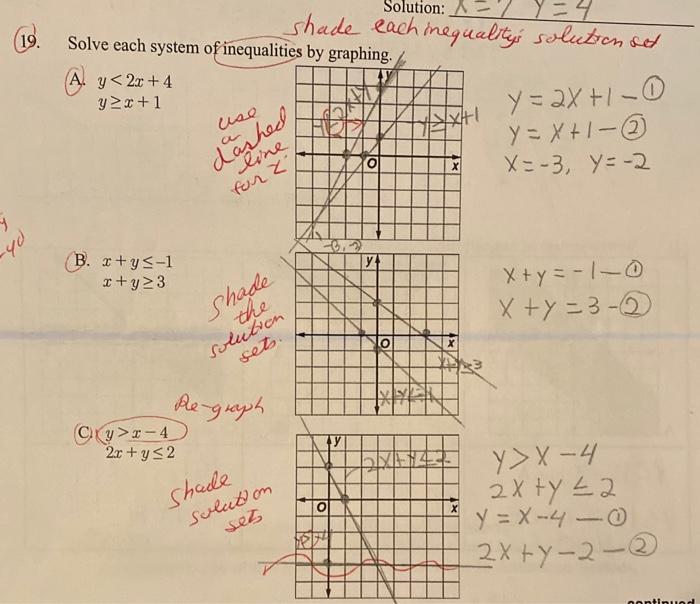 Solution: X = 7 Y = 4
shade each inequality's solution set
19. Solve each system of inequalities by graphing.
A. y < 2x + 4
y ≥ x + 1
use
a
dashed
line
for <
y
y≥x+1
O
x
-3, -2
y = 2x + 1 - ①
y = x + 1 - ②
x = -3, y = -2
-40
B. x + y ≤ -1
x + y ≥ 3
shade
the
solution
sets.
y
O
x
x+y≥3
x+y≤-1
x + y = -1 - ①
x + y = 3 - ②
Re-graph
C. y > x - 4
2x + y ≤ 2
shade
solution
sets
y
2x+y≤2
O
x
y > x - 4
2x + y ≤ 2
y = x - 4 - ①
2x + y - 2 - ②
continued